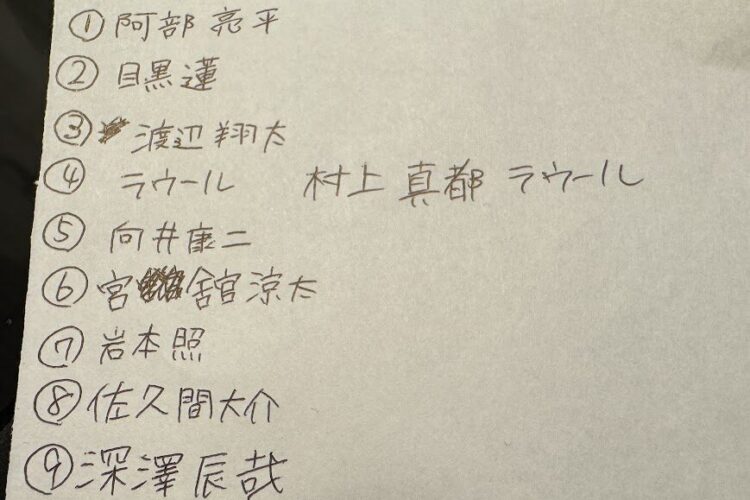 ① 阿部 亮平
② 目黒 蓮
③ 渡辺 翔太
④ ラウール 村上 真都 ラウール
⑤ 向井康二
⑥ 宮舘涼太
⑦ 岩本照
⑧ 佐久間大介
⑨ 深澤辰哉